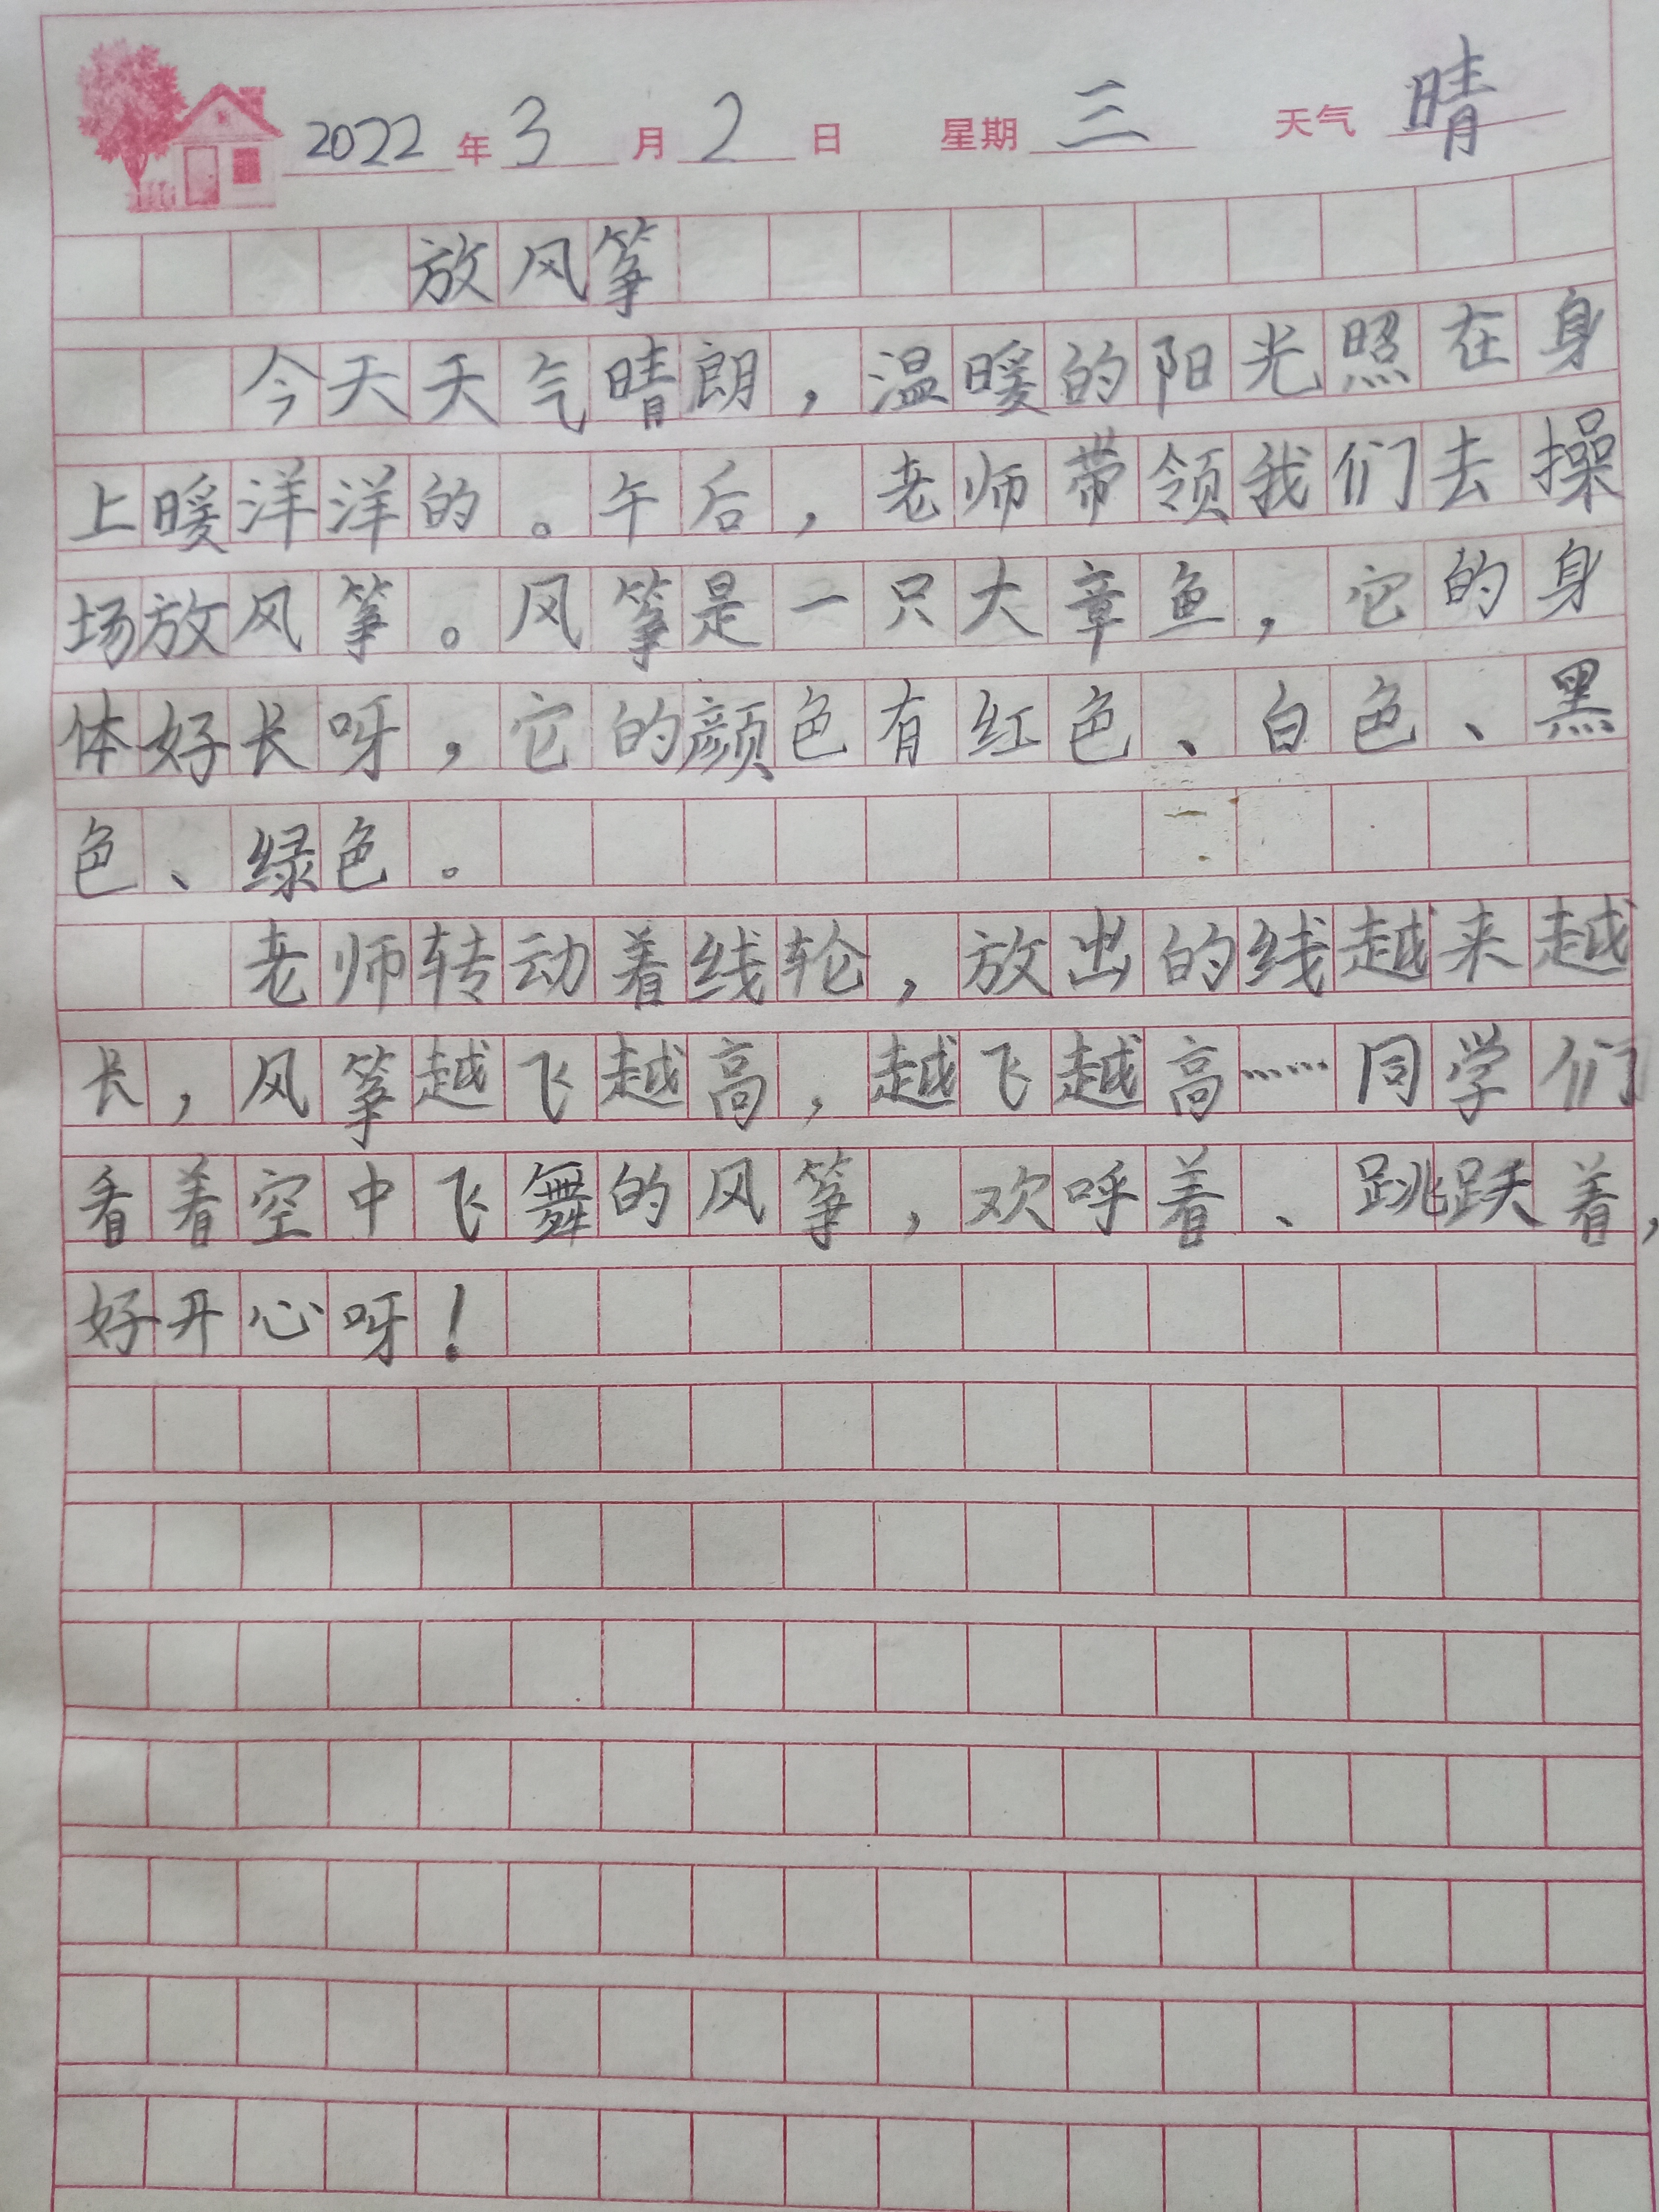 2022年3月2日 星期三 天气晴
放风筝
今天天气晴朗，温暖的阳光照在身
上暖洋洋的。午后，老师带领我们去操
场放风筝。风筝是一只大章鱼，它的身
体好长呀，它的颜色有红色、白色、黑
色、绿色。
老师转动着线轮，放出的线越来越
长，风筝越飞越高，越飞越高……同学们
看着空中飞舞的风筝，欢呼着、跳跃着，
好开心呀！